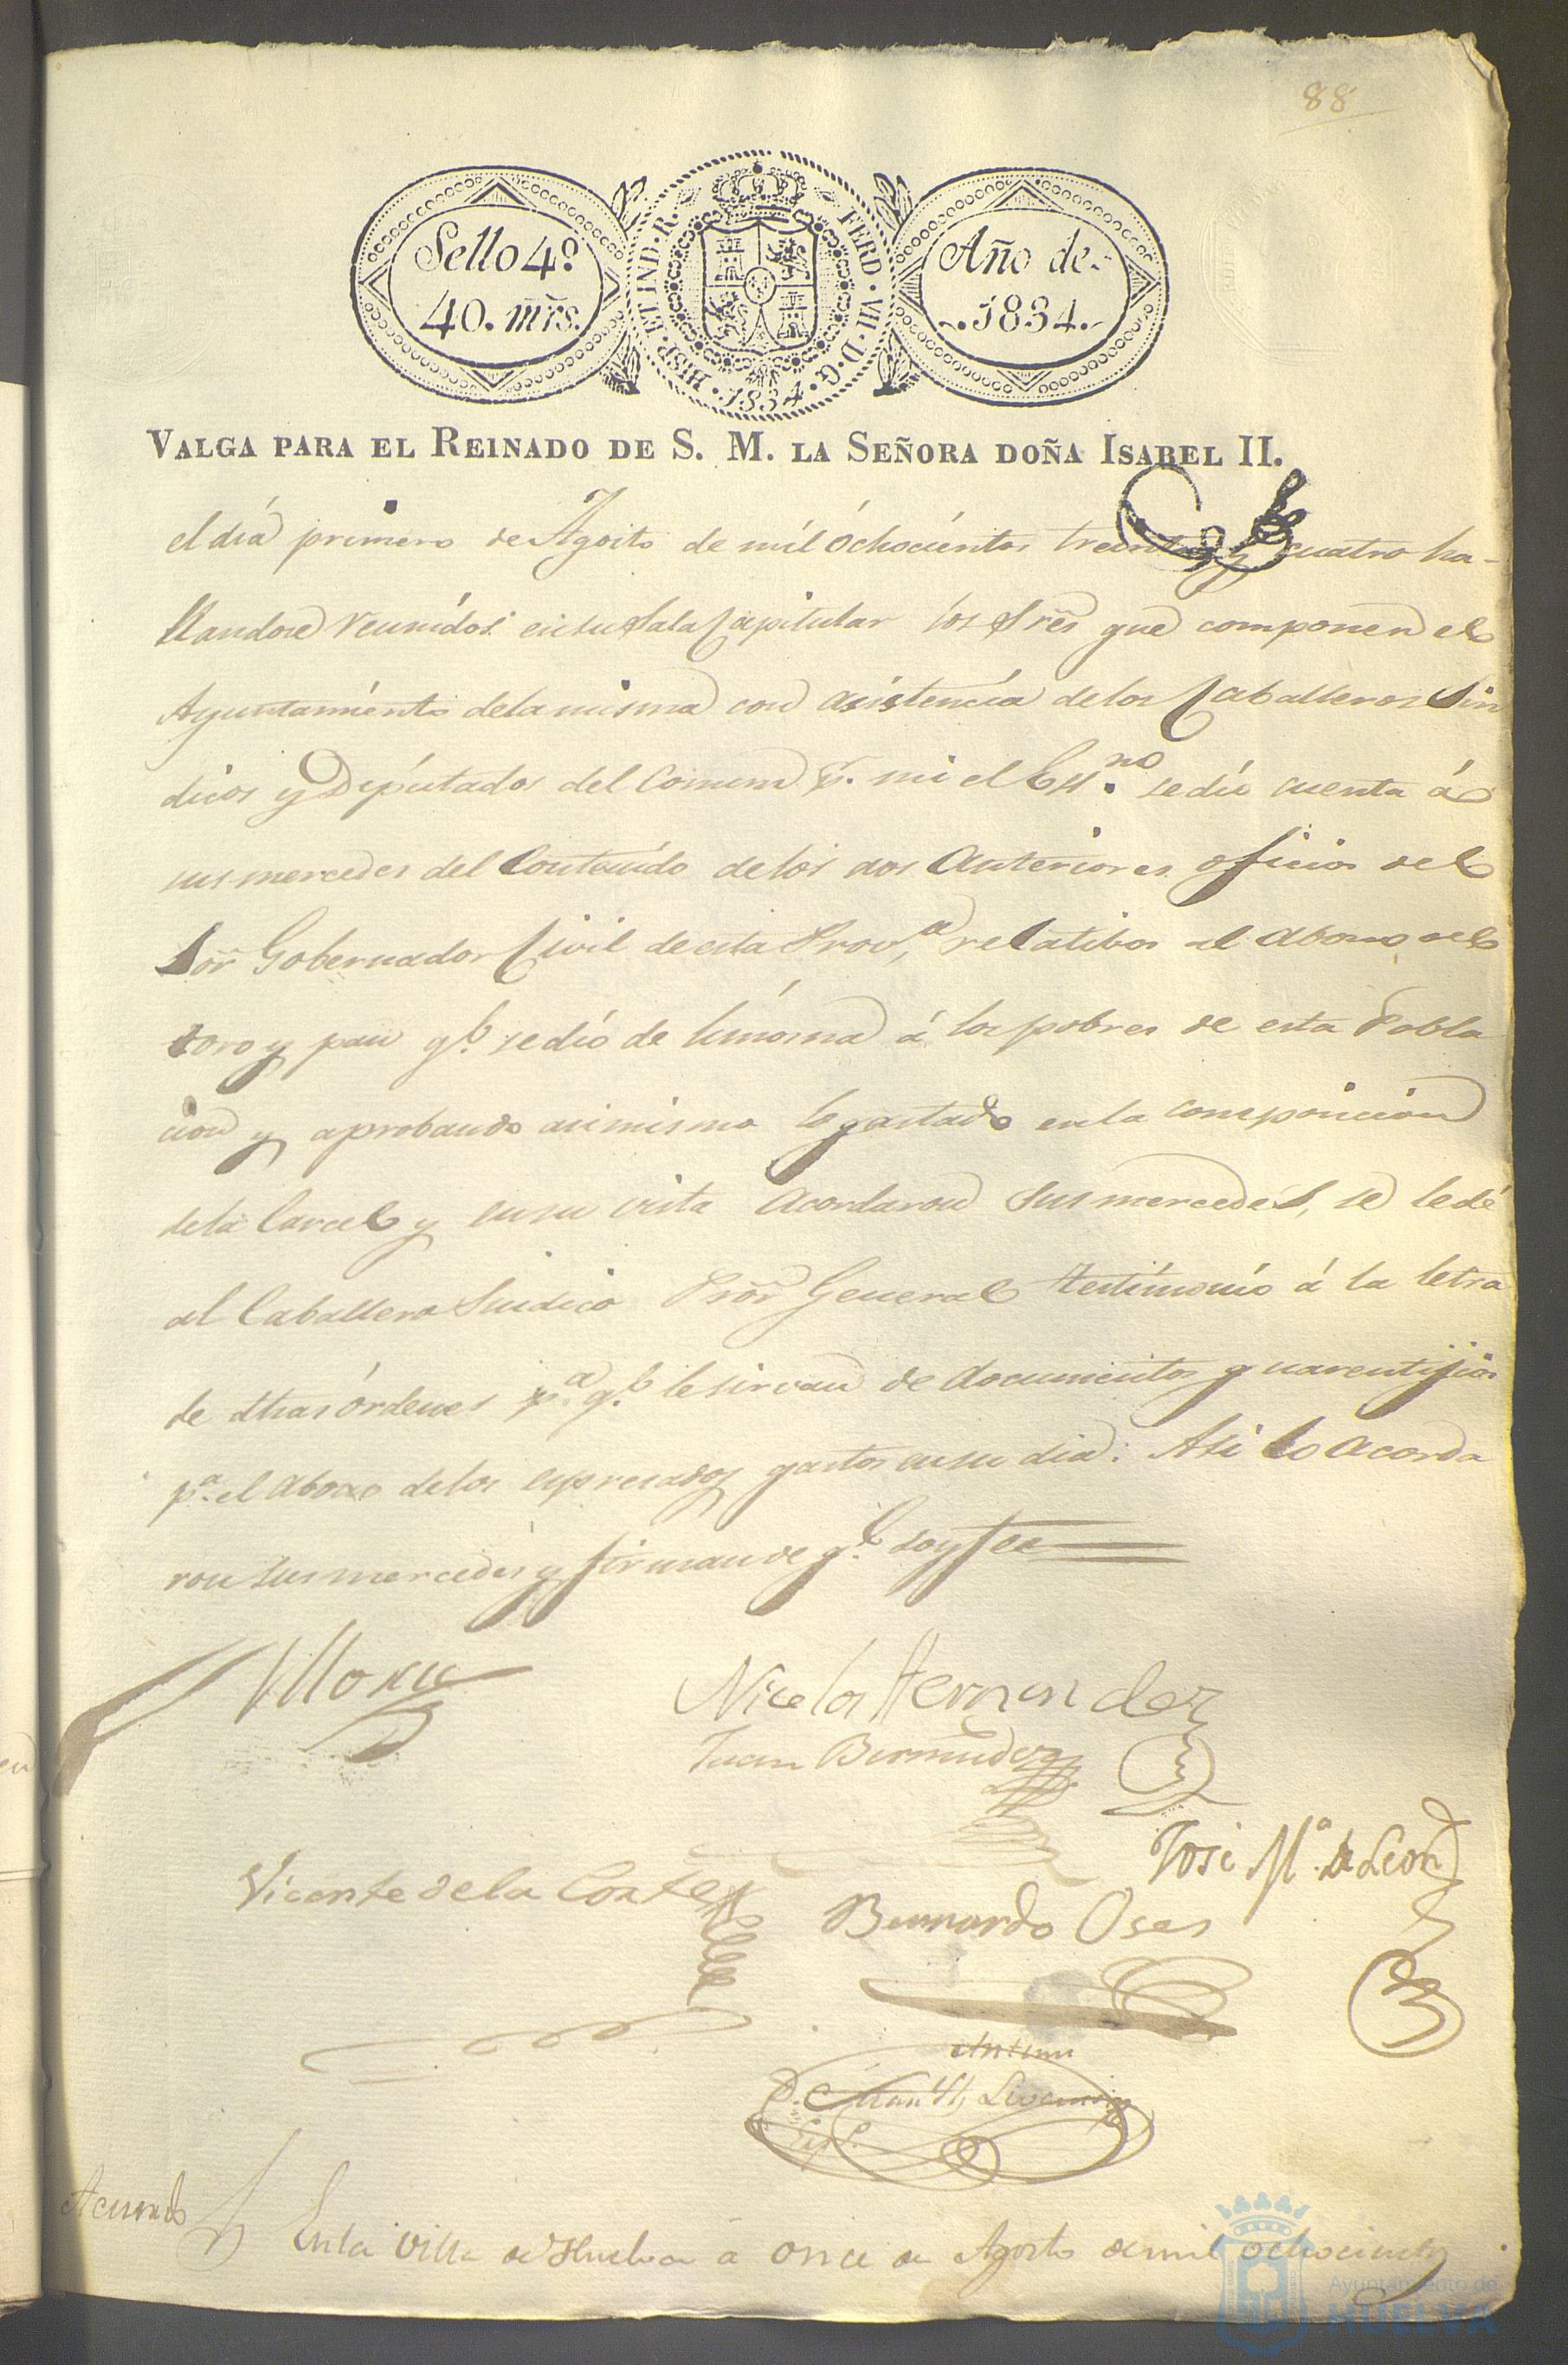 88
Sello 4º
40. mrs.
HISP. ET IND. R. FERD. VII. D. G. 1834.
Año de
1834.
VALGA PARA EL REINADO DE S. M. LA SEÑORA DOÑA ISABEL II.
el día primero de Agosto de mil ochocientos treinta y cuatro ha-
llandose reunidos en su Sala Capitular los Sres que componen el
Ayuntamiento de la misma con asistencia de los Caballeros Sin
dicos y Diputados del Comun pr. mi el Essno se dio cuenta á
sus mercedes del Contenido de los dos anteriores oficios del
Sor Gobernador Civil de esta Prova, relatibos al abono del
toro y pan qe. se dió de limosna á los pobres de esta Pobla
cion y aprobando asimismo lo gastado en la composicion
de la Carcel y en su vista acordaron sus mercedes, se le dé
al Caballero Sindico Pror General testimonio á la letra
de dhas órdenes pa. qe. le sirvan de documentos guarentijios
pa. el abono de los espresados gastos en su dia: Asi lo acorda
ron sus mercedes y firman de qe. doy fee
Nicolas Hernandez
Juan Bermudez
José Mª. de Leon
Vicente de la Corte
Bernardo Oses
Antemi
Acuerdo
En la Villa de Huelva á once de Agosto de mil ochocientos
Ayuntamiento de
HUELVA